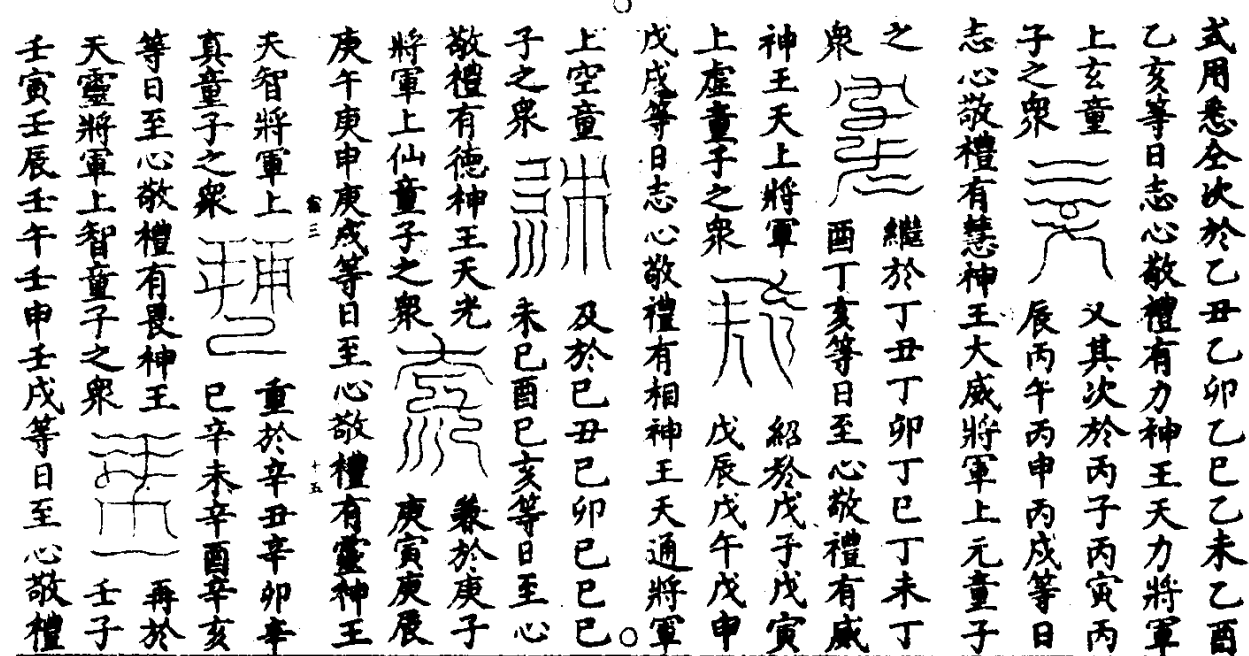 式用悉仝次於乙丑乙卯乙巳乙未乙酉
乙亥等日志心敬禮有力神王天力將軍
上玄童
子之衆
又其次於丙子丙寅丙
辰丙午丙申丙戍等日
志心敬禮有慧神王大威將軍上元童子
之
衆
繼於丁丑丁卯丁巳丁未丁
酉丁亥等日至心敬禮有威
神王天上將軍
上虛童子之衆
紹於戊子戊寅
戊辰戊午戊申
戊戌等日志心敬禮有相神王天通將軍
上空童
子之衆
及於巳丑巳卯巳巳巳
未巳酉巳亥等日至心
敬禮有德神王天光
將軍上仙童子之衆
兼於庚子
庚寅庚辰
庚午庚申庚戍等日至心敬禮有靈神王
三
十五
天智將軍上
真童子之衆
重於辛丑辛卯辛
巳辛未辛酉辛亥
等日至心敬禮有畏神王
天靈將軍上智童子之衆
再於
壬子
壬寅壬辰壬午壬申壬戌等日至心敬禮